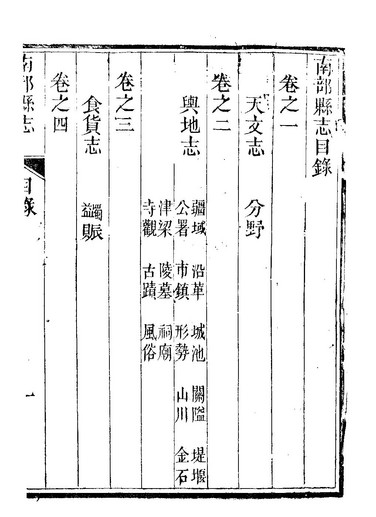 南部縣志目錄
卷之一
天文志 分野
卷之二
輿地志
疆域 沿革 城池 關隘 堤堰
公署 市鎮 形勢 山川 金石
津梁 陵墓 祠廟
寺觀 古蹟 風俗
卷之三
食貨志 蠲賑
卷之四
南部縣志 目錄 一